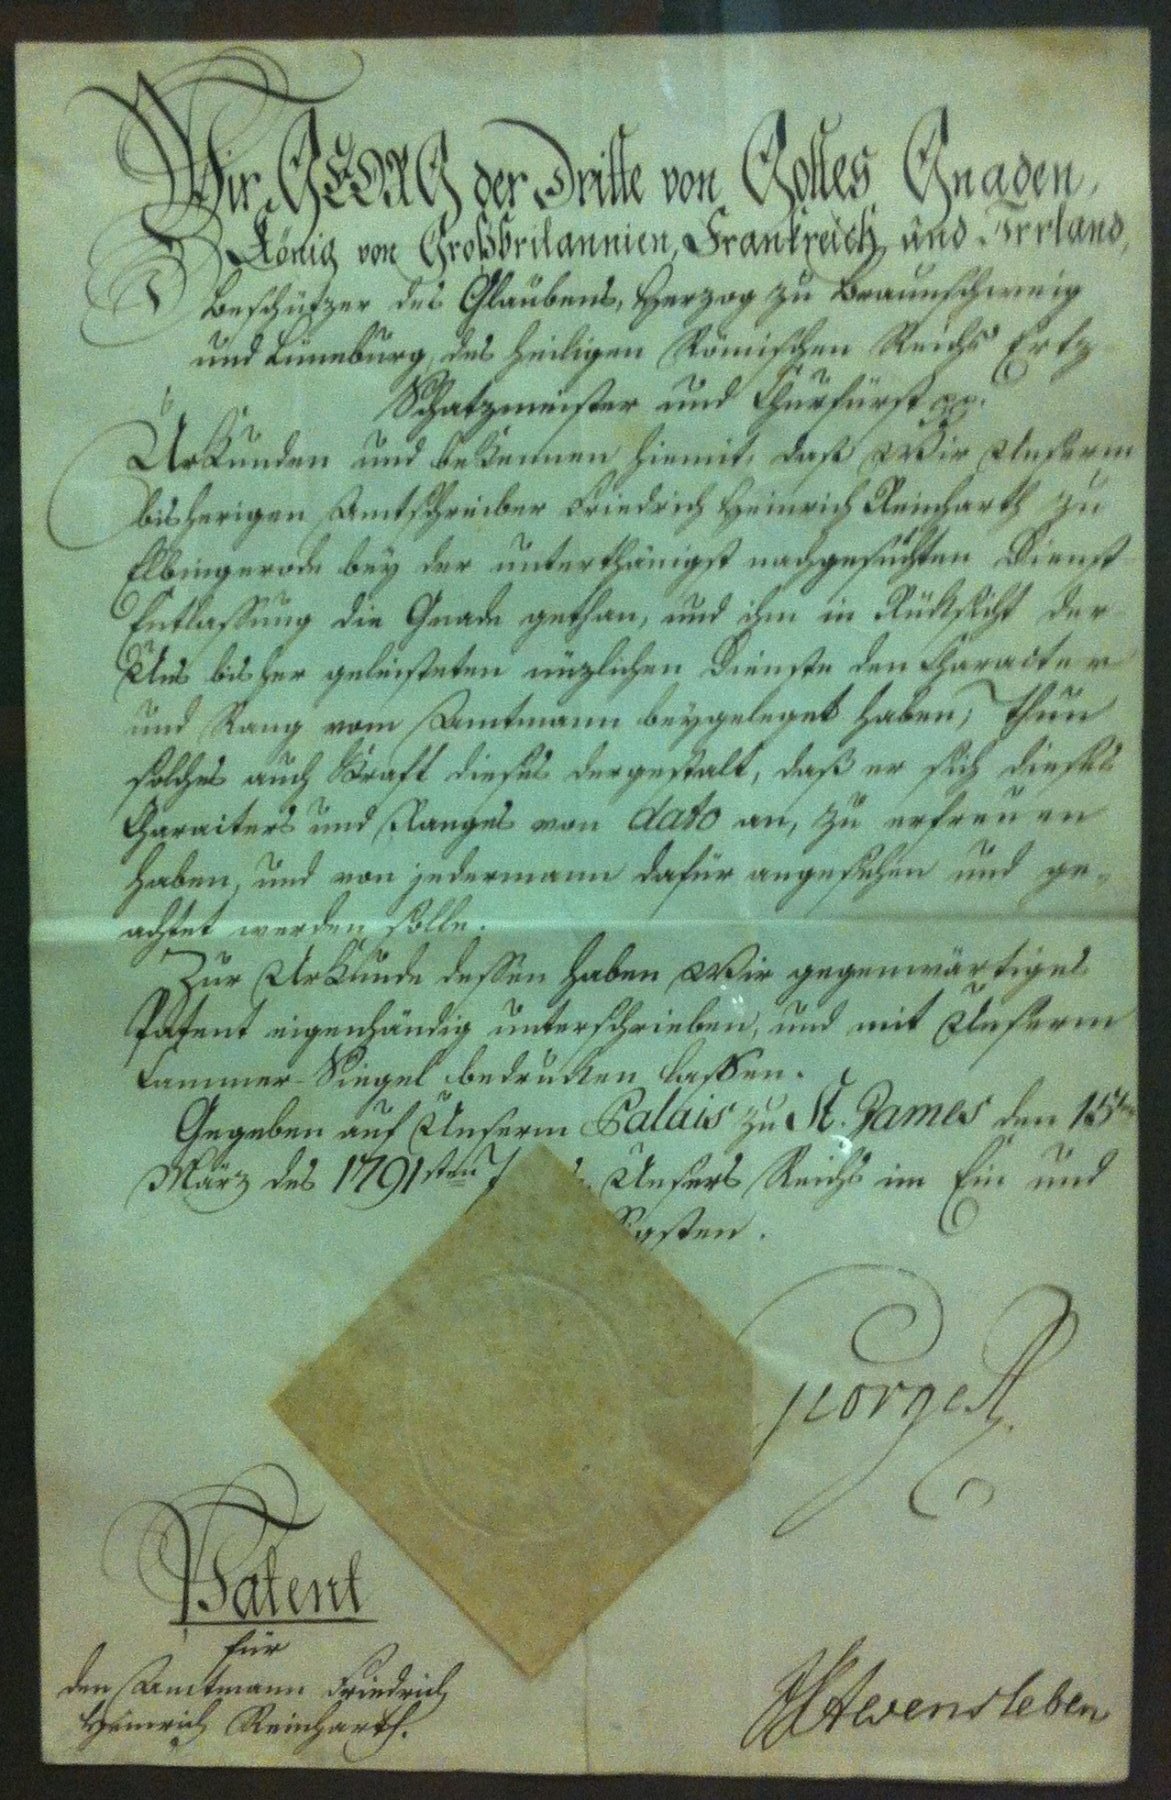 Wir GEORG der Dritte von Gottes Gnaden,
König von Großbritannien, Franckreich und Irrland,
Beschützer des Glaubens, Herzog zu Braunschweig
und Lüneburg, des heiligen Römischen Reichs Ertz
Schatzmeister und Churfürst
Urkunden und bekennen hiemit, daß Wir Unserm
bisherigen Amtschreiber Friedrich Heinrich Reinharth zu
Elbingerode bey der unterthänigst nachgesuchten Dienst
Entlassung die Gnade gethan, und ihm in Rücksicht der
Uns bisher geleisteten nüzlichen Dienste den Character
und Rang vom Amtmann beygeleget haben; Thun
solches auch Kraft dieses dergestalt, daß er sich dieses
Characters und Ranges von dato an, zu erfreuen
haben, und von jedermann dafür angesehen und ge-
achtet werden solle.
Zur Urkunde dessen haben Wir gegenwärtiges
Patent eigenhändig unterschrieben, und mit Unserm
Cammer-Siegel bedrucken lassen.
Gegeben auf Unserm Palais zu St. James den 15ten
März des 1791sten Unsers Reichs im Ein und
George R.
Patent
für
den Amtmann Friedrich
Heinrich Reinharth.
Alvensleben